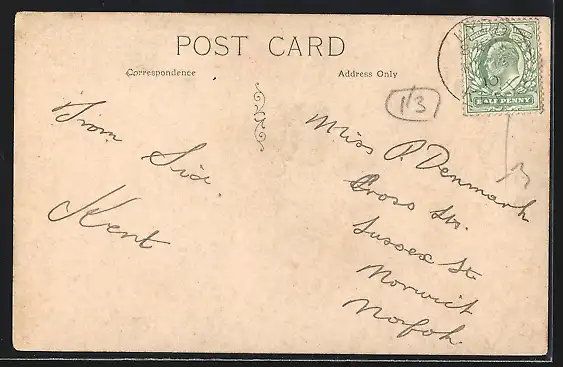 POST CARD
Correspondence
Address Only
1/3
HALF PENNY
From
Kent
Miss P. Denmark
Cross Sts.
Sussex St
Norwich
Norfolk